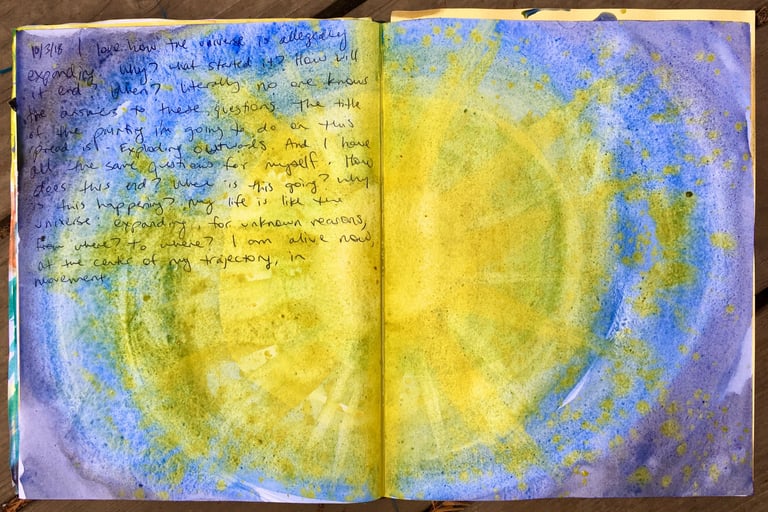 10/3/18 I love how the universe is allegedly
expanding. Why? What started it? How will
it end? When? Literally no one knows
the answers to these questions. The title
of the painting I'm going to do on this
spread is: Exploding Outwards. And I have
all the same questions for myself. How
does this end? Where is this going? Why
is this happening? My life is like the
universe: expanding, for unknown reasons,
from where? to where? I am alive now,
at the center of my trajectory, in
movement